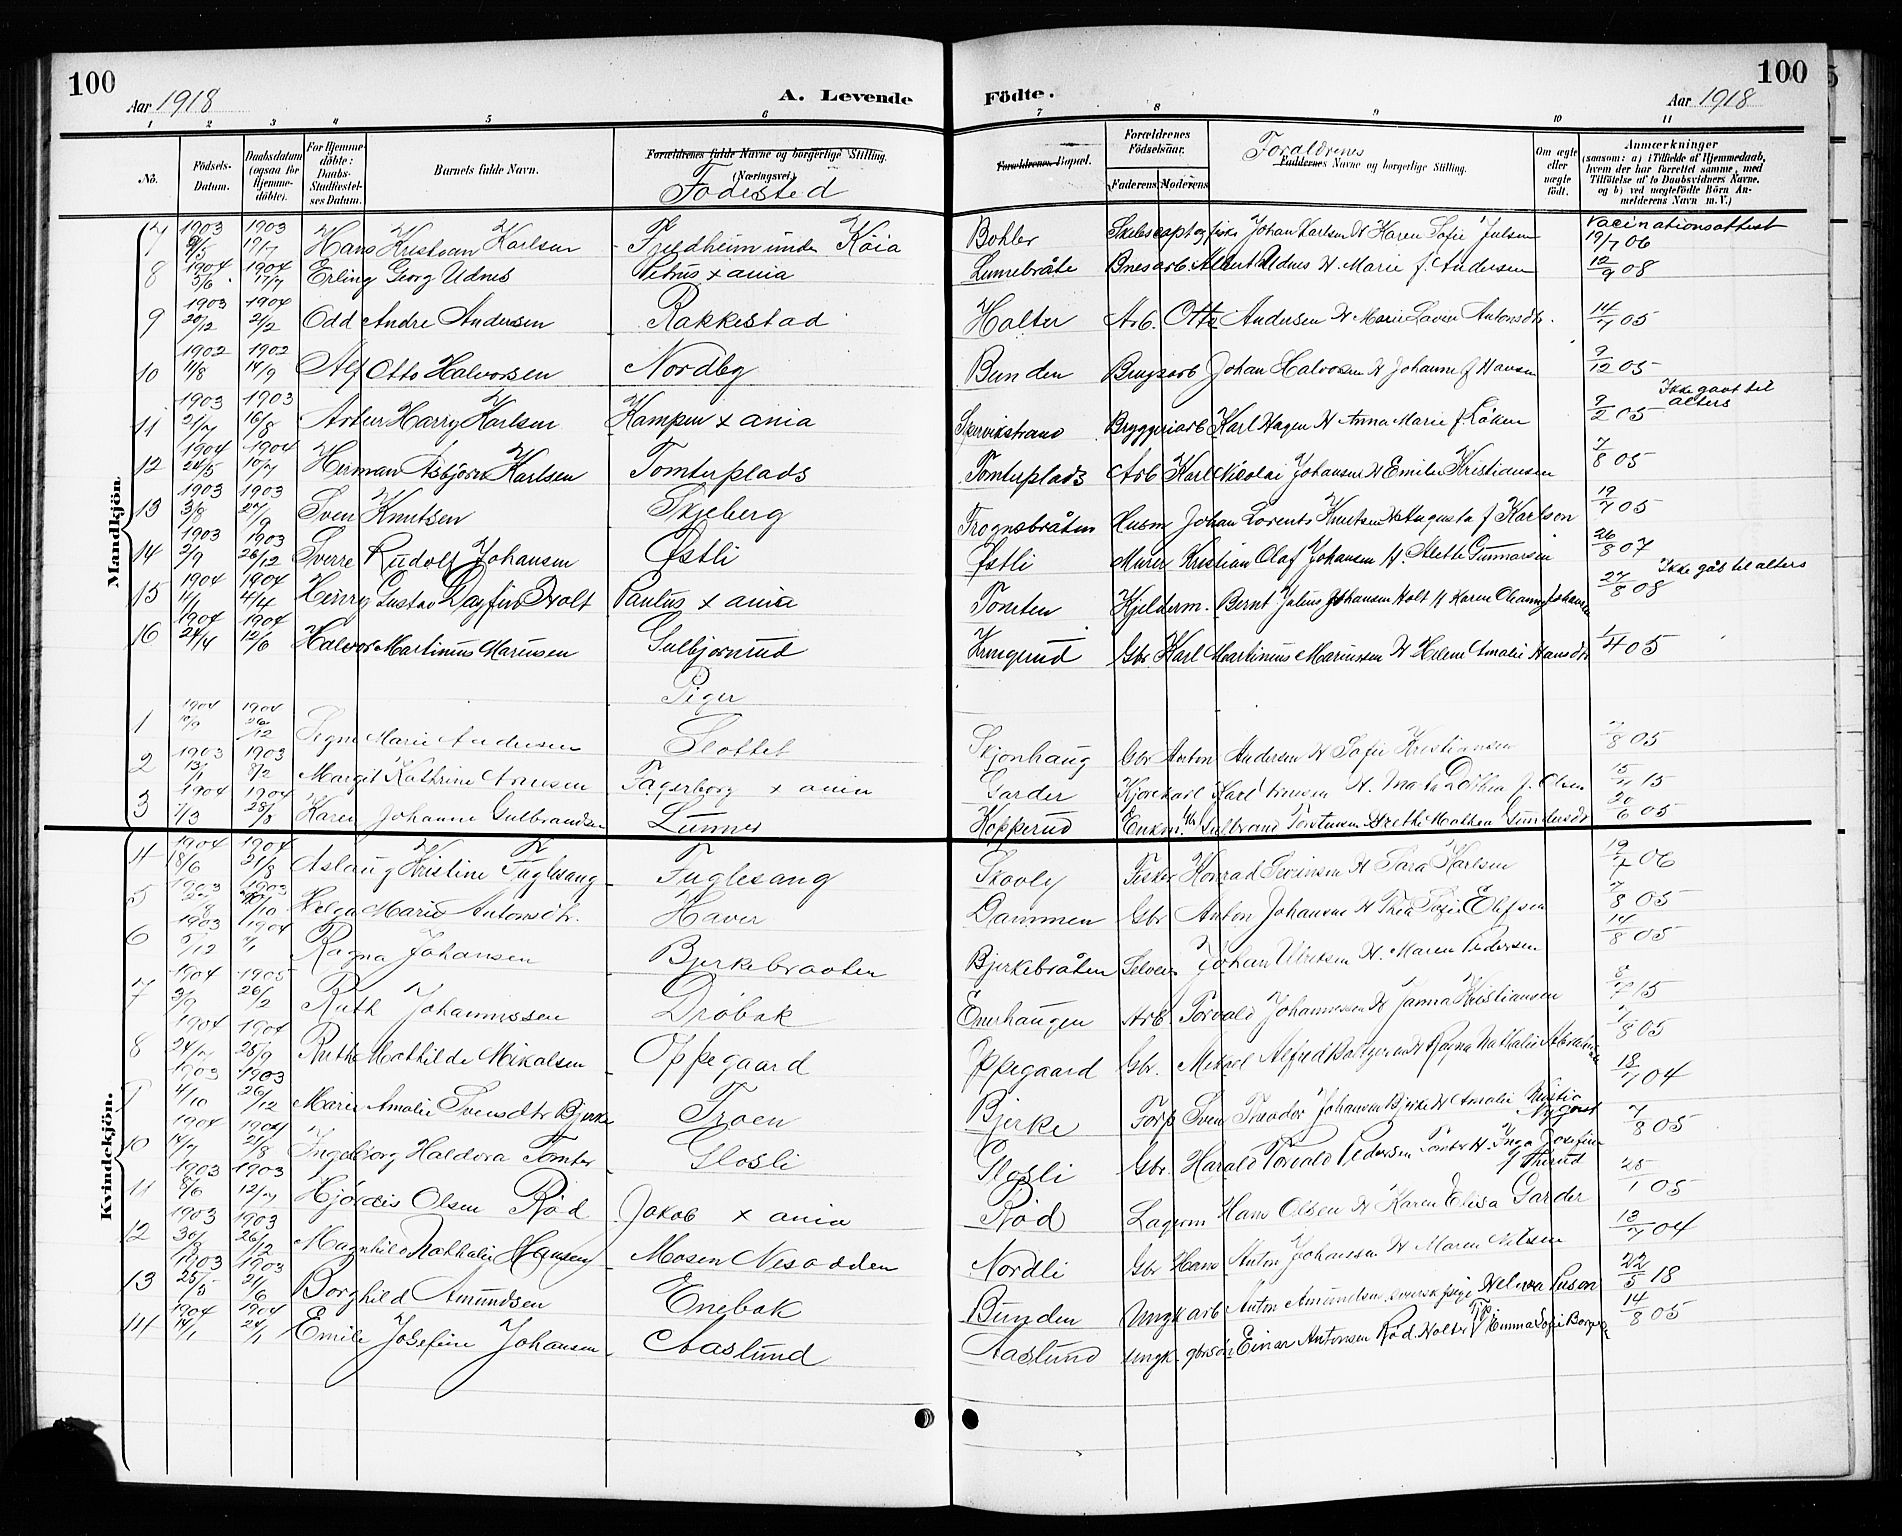 100
Aar 1918
A. Levende
Fødte.
Aar 1918
100
1 2 3 4 5 6 7 8 9 10 11
No.
Fødsels-Datum.
Daabsdatum (ogsaa for Hjemmedøbte).
For Hjemmedøbte: Daabs-Stadfæstelses Datum.
Barnets fulde Navn.
Forældrenes fulde Navne og borgerlige Stilling. (Næringsvei).
Fødested
Forældrenes Bopæl.
Forældrenes Fødselsaar.
Faderens Moderens
Forældrenes
Faddernes Navne og borgerlige Stilling.
Om ægte eller uægte født.
Anmærkninger
(saasom: a) i Tilfælde af Hjemmedaab, hvem der har forrettet samme, med Tilføielse af to Daabsvidners Navne, og b) ved uægtefødte Børn Anmelderens Navn m. V.)
Mandkjøn.
Vacinationsattest
7 1903 1903 17/7 Hans Kristian Karlsen Fjeldheim under Köia Bohler Johan Karlsen H Karen Sofie Julsen 19/7 06
8 1904 5/6 1904 17/7 Erling Georg Udnes Petrus x ania Lunnebråte Albert Udnes H. Marie f. Andersen 12/9 08
9 1903 20/12 1904 21/2 Odd Andre Andersen Rakkestad Holter Arb. Otto Andersen H Marie Antonsdtr. 14/7 05
10 1902 11/8 1902 14/9 Alf Otto Halvorsen Nordby Bunden Brugsarb Johan Halvorsen H Johanne f Hansen 9/12 05
11 1903 21/7 1903 16/8 Artur Harry Karlsen Kampen x ania Spervikstrand Bryggeriarb Karl Hagen H Anna Marie f. Röken 9/2 05 Ikke gaat til alters
12 1904 24/5 1904 10/7 Herman Asbjørn Karlsen Tomterplads Tomterplads Arb Karl Nikolai Johansen H Emilie Kristiansen 7/8 05
13 1903 3/8 1903 27/9 Sven Knutsen Skjeberg Trognsbråten Husm Johan Lorents Knutsen H Augusta f Karlson 19/7 05
14 1903 2/9 1903 26/12 Sverre Rudolf Johansen Østli Østli Murer Kristian Olaf Johansen H. Gunnarsen 26/8 07
15 1904 11/1 1904 4/4 Henry Gustav Dagfin Holt Paulus x ania Tomten Kjelderm. Bernt Julius Johansen Holt H Karen 27/8 08 Ikke gåt til alters
16 1904 24/4 1904 12/6 Halvor Martinus Mariusen Gulbjørnrud Kringrud Gbr Karl Martinus Mariussen H Helene Amalie Hansdtr 1/4 05
Piger
1 1904 1904 26/12 Signe Marie Andersen Slottet Skjonhaug Gbr Anton Andersen H Sofie Kristiansen 8 05
2 1903 13/1 1903 8/2 Margit Kathrine Arnesen Fagerborg x ania Garder Kjørekarl Karl Arnesen H. Dorthea f. Olsen 15
3 1904 7/3 1904 28/8 Karen Johanne Gulbrandsen Lunner Kopperud Gulbrand Torstensen 20/6 05
Kvindekjøn.
4 1904 18/6 1904 21/8 Aslaug Kristine Fuglesang Fuglesang Skovly Fisker Konrad Sørensen H Sara Karlsen 19/7 06
5 1903 1903 10 Helga Marie Antonsdtr. Haver Dammen Gbr Anton Johansen H Thea Sofie Elefsen 7/8 05
6 1903 5/12 1904 Ragna Johansen Bjerkebraaten Bjerkebråten Selveier Johan Ulriksen H. Maren Pedersen 14/8 05
7 1904 2/9 1905 26/2 Ruth Johannessen Drøbak Enerhaugen Arb Torvald Johannessen H Janna Kristiansen 8/7 15
8 1904 24/7 1904 25/9 Ruth Mathilde Mikalsen Oppegaard Oppegaard Gbr. Mikael Alfred H Ragna Nathalie 7/8 05
9 1903 4/10 1903 26/12 Marie Amalie Svensdtr Bjerke Troen Bjerke Torp Sven Teodor Johansen Bjerke H Amalie 18/7 04
10 1904 14/7 1904 21/8 Ingeborg Haldora Tomter Slosli Slosli Gbr. Harald Torvald Pedersen Tomter H. Inga Josefine 7/8 05
11 1903 8/6 1903 12/7 Hjørdis Olsen Rød Jakob x ania Rød Lagerm Hans Olsen H Karen Elisa Garder 25/1 05
12 1903 30/9 1903 26/12 Magnhild Nathalie Hansen Mosen Nesodden Nordli Gbr Hans Anton Johansen H Maren Nilsen 18/7 04
13 1903 25/5 1903 21/6 Borghild Amundsen Enebak Bunden Ungk arb Anton Amundsen svensk pige 22/5 18
14 1904 14/1 1904 24/1 Emilie Josefine Johansen Aaslund Aaslund Ungk. gbrsøn Einar Antonsen Rød. Holter Pi. Emma Sofie 14/8 05